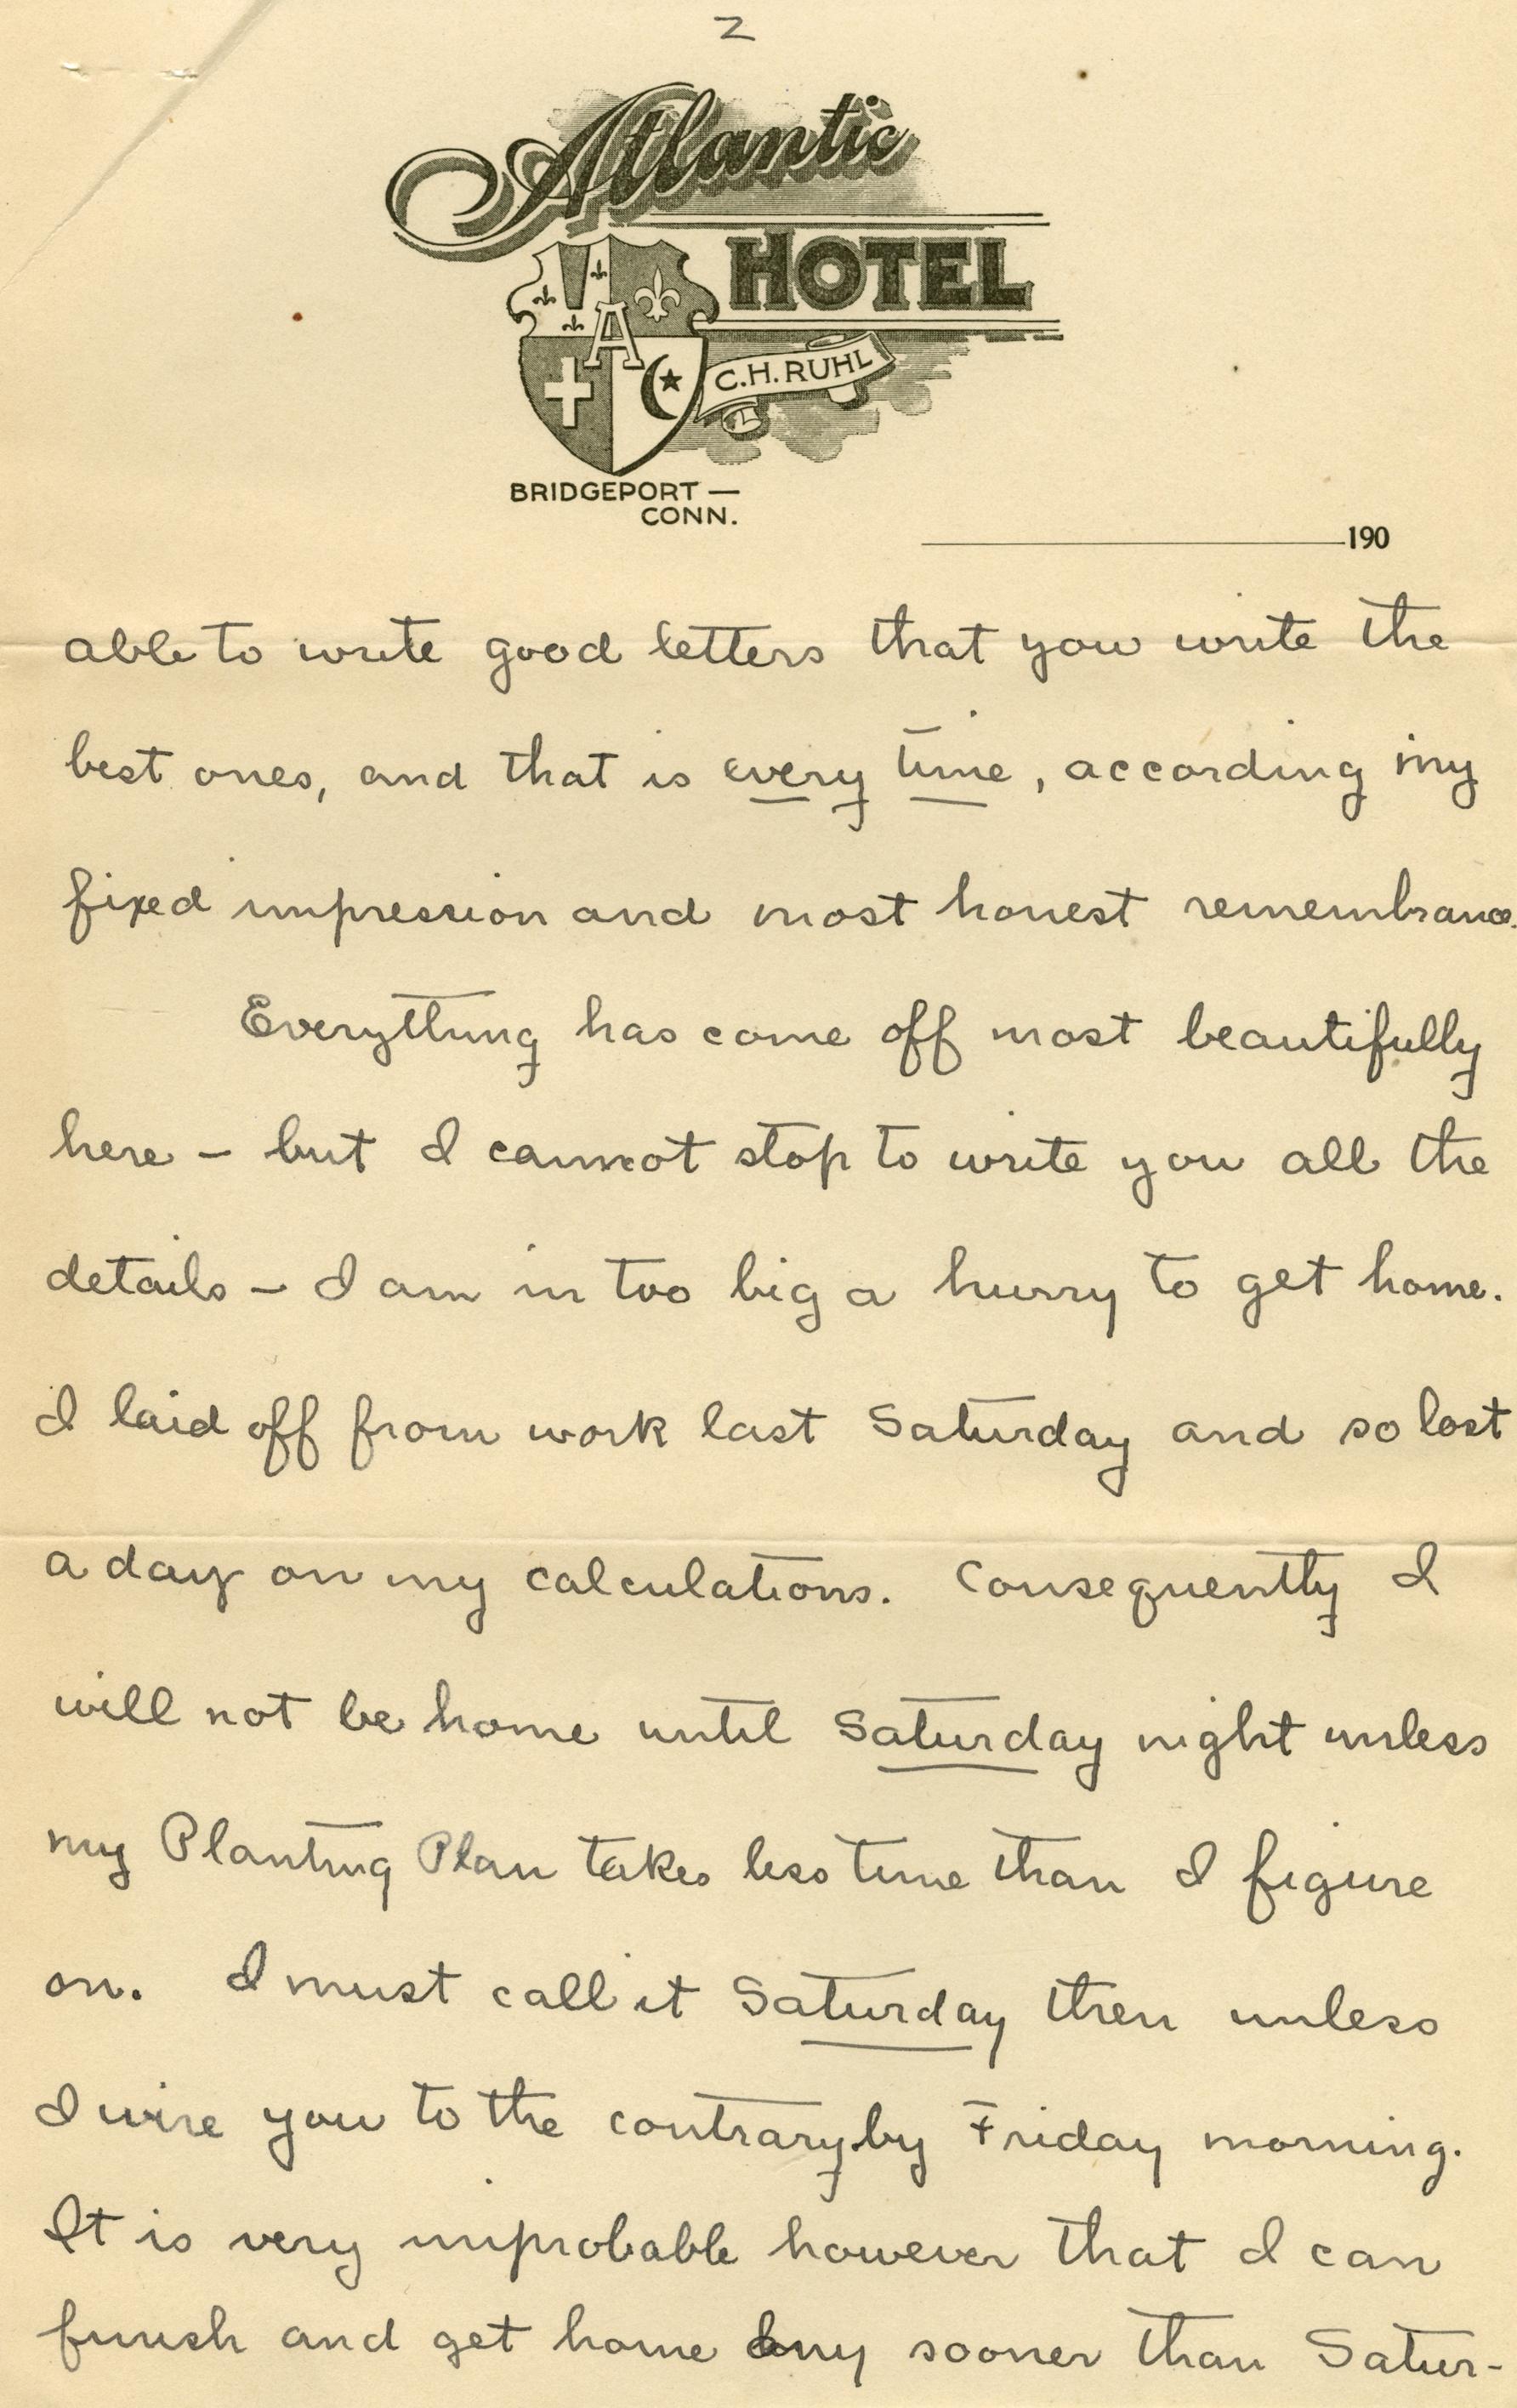 2
Atlantic
HOTEL
A
C.H. RUHL
BRIDGEPORT —
CONN.
190
able to write good letters that you write the
best ones, and that is every time, according my
fixed impression and most honest remembrance.
Everything has come off most beautifully
here – but I cannot stop to write you all the
details – I am in too big a hurry to get home.
I laid off from work last Saturday and so lost
a day on my calculations. Consequently I
will not be home until Saturday night unless
my Planting Plan takes less time than I figure
on. I must call it Saturday then unless
I wire you to the contrary by Friday morning.
It is very improbable however that I can
finish and get home any sooner than Satur-